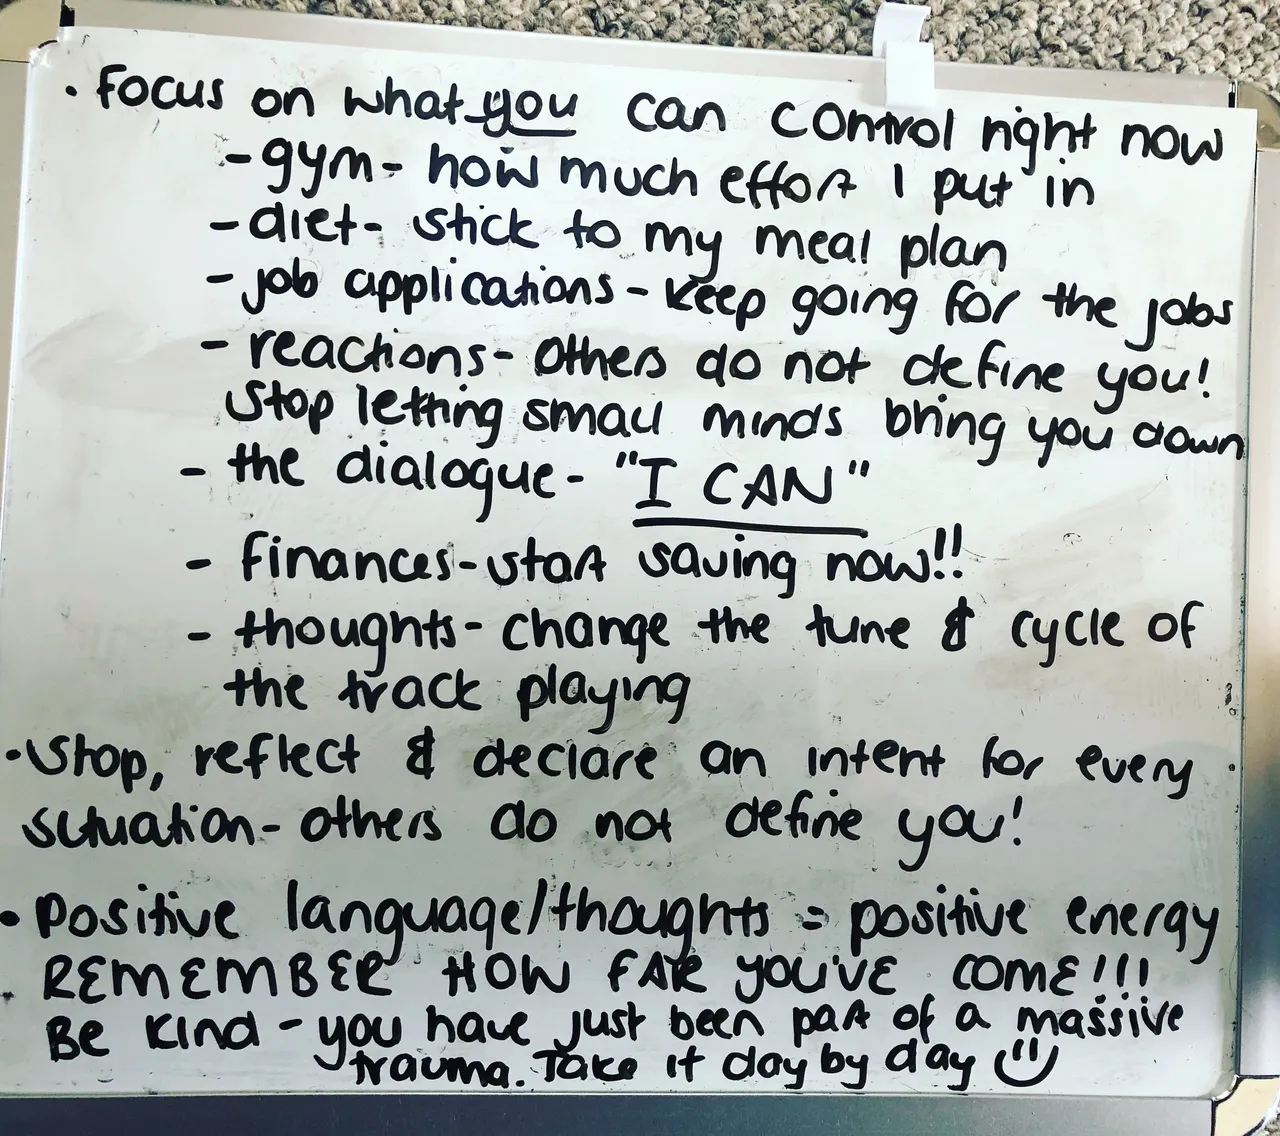 • Focus on what you can control right now
- gym - how much effort I put in
- diet - stick to my meal plan
- job applications - keep going for the jobs
- reactions - others do not define you!
Stop letting small minds bring you down
- the dialogue - "I CAN"
- finances - start saving now!!
- thoughts - change the tune & cycle of
the track playing
• Stop, reflect & declare an intent for every
situation - others do not define you!
• Positive language/thoughts = positive energy
REMEMBER HOW FAR YOU'VE COME!!!
Be kind - you have just been part of a massive
trauma. Take it day by day ☺